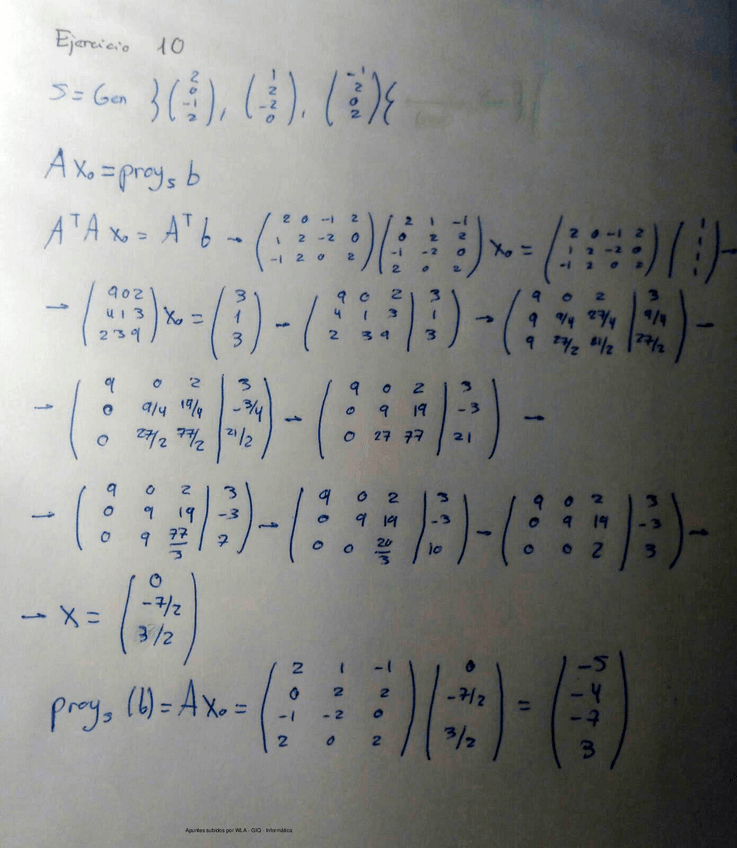 Ejercicio 10
S = Gen }(2 0 -1 2), (1 2 -2 0), (-1 2 0 2){
A x₀ = proy_s b
AᵀA x₀ = Aᵀ b → (2 0 -1 2 / 1 2 -2 0 / -1 2 0 2)(2 1 -1 / 0 2 2 / -1 -2 0 / 2 0 2) x₀ = (2 0 -1 2 / 1 2 -2 0 / -1 2 0 2)(1 1 1 1) →
→ (9 0 2 / 4 1 3 / 2 3 9) x₀ = (3 / 1 / 3) → (9 0 2 | 3 / 4 1 3 | 1 / 2 3 9 | 3) → (9 0 2 | 3 / 9 9/4 27/4 | 9/4 / 9 27/2 81/2 | 27/2) →
→ (9 0 2 | 3 / 0 9/4 19/4 | -3/4 / 0 27/2 77/2 | 21/2) → (9 0 2 | 3 / 0 9 19 | -3 / 0 27 77 | 21) →
→ (9 0 2 | 3 / 0 9 19 | -3 / 0 9 77/3 | 7) → (9 0 2 | 3 / 0 9 19 | -3 / 0 0 20/3 | 10) → (9 0 2 | 3 / 0 9 19 | -3 / 0 0 2 | 3) →
→ x = (0 / -7/2 / 3/2)
proy_s (b) = A x₀ = (2 1 -1 / 0 2 2 / -1 -2 0 / 2 0 2)(0 / -7/2 / 3/2) = (-5 / -4 / -7 / 3)
Apuntes subidos por WLA - GIQ - Informática